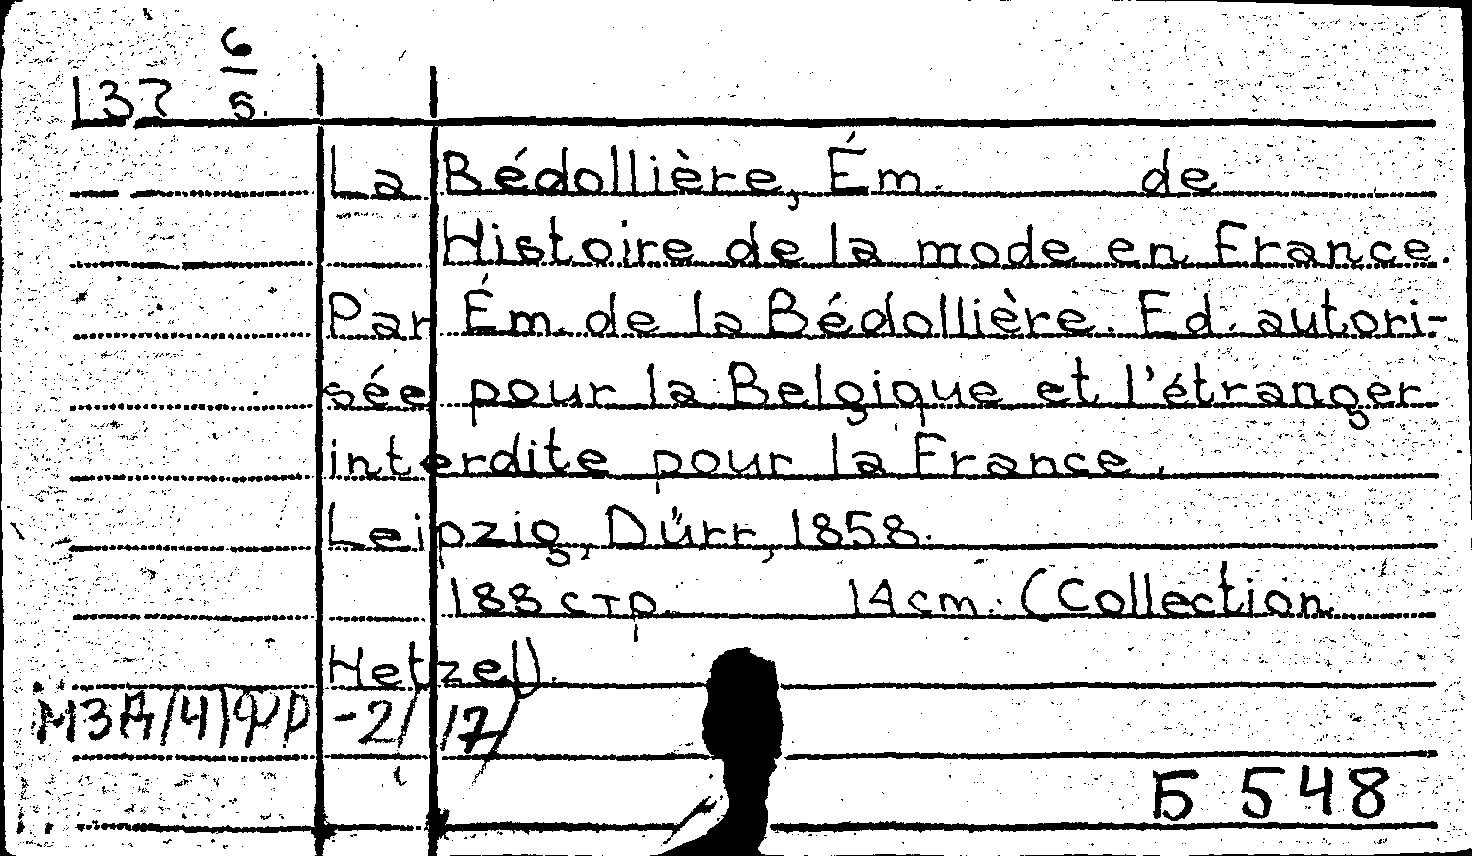 137 6/5.
La Bédollière, Ém. de
Histoire de la mode en France.
Par Ém. de la Bédollière. Ed. autori-
sée pour la Belgique et l'étranger
interdite pour la France.
Leipzig, Dürr, 1858.
188 стр. 14cm. (Collection
Hetzel).
-2/17/
Б 548